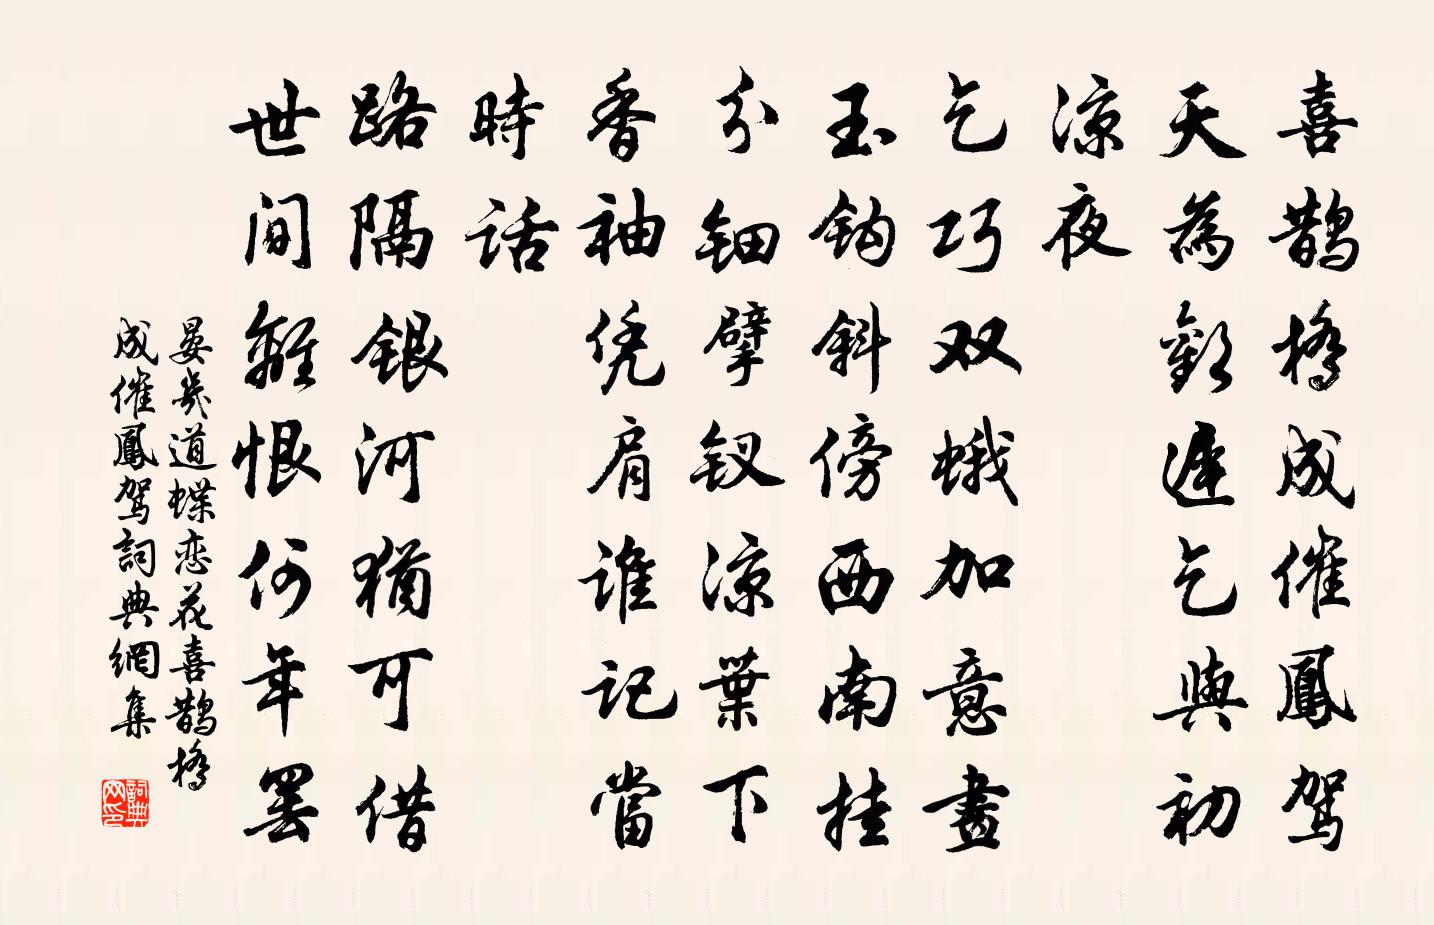 喜鹊橋成催鳳驾
天為歡遲乞與初
涼夜
乞巧双蛾加意畫
玉钩斜傍西南挂
分钿擘钗涼葉下
香袖凭肩谁记當
時话
路隔银河猶可借
世间離恨何年罢
晏幾道蝶恋花喜鹊橋
成催鳳驾詞典網集
詞典网印